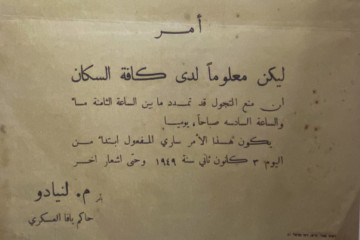 أمر
ليكن معلوماً لدى كافة السكان
ان منع التجول قد تمدد ما بين الساعة الثامنة مساء
والساعة السادسه صباحاً، يوميا.
يكون هذا الأمر ساري المفعول ابتداءً من
اليوم ٣ كانون ثاني سنة ١٩٤٩ وحتى اشعار اخر
م. لنيادو
حاكم يافا العسكري